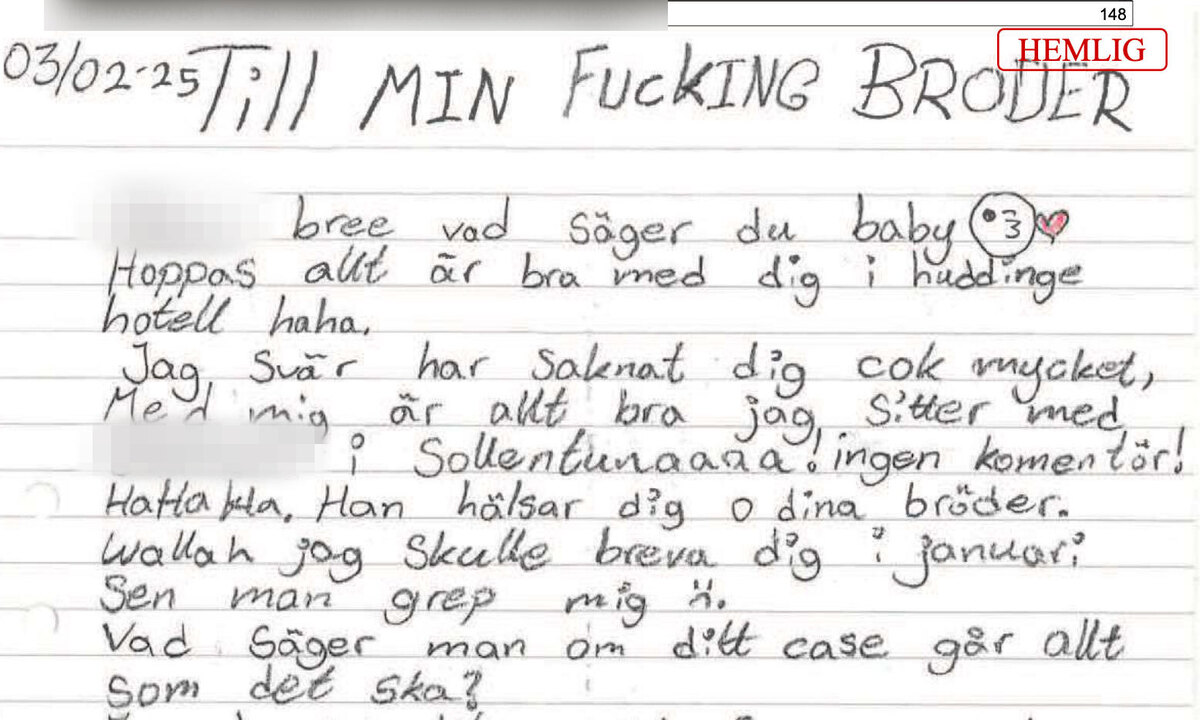 148
HEMLIG
03/02-25 Till MIN FUCKING BRODER
bree vad säger du baby
Hoppas allt är bra med dig i huddinge
hotell haha.
Jag svär har saknat dig cok mycket,
Med mig är allt bra jag sitter med
i Sollentunaaaa! ingen komentör!
HaHaHa. Han hälsar dig o dina bröder.
Wallah jag skulle breva dig i januari
Sen man grep mig
Vad säger man om ditt case går allt
som det ska?